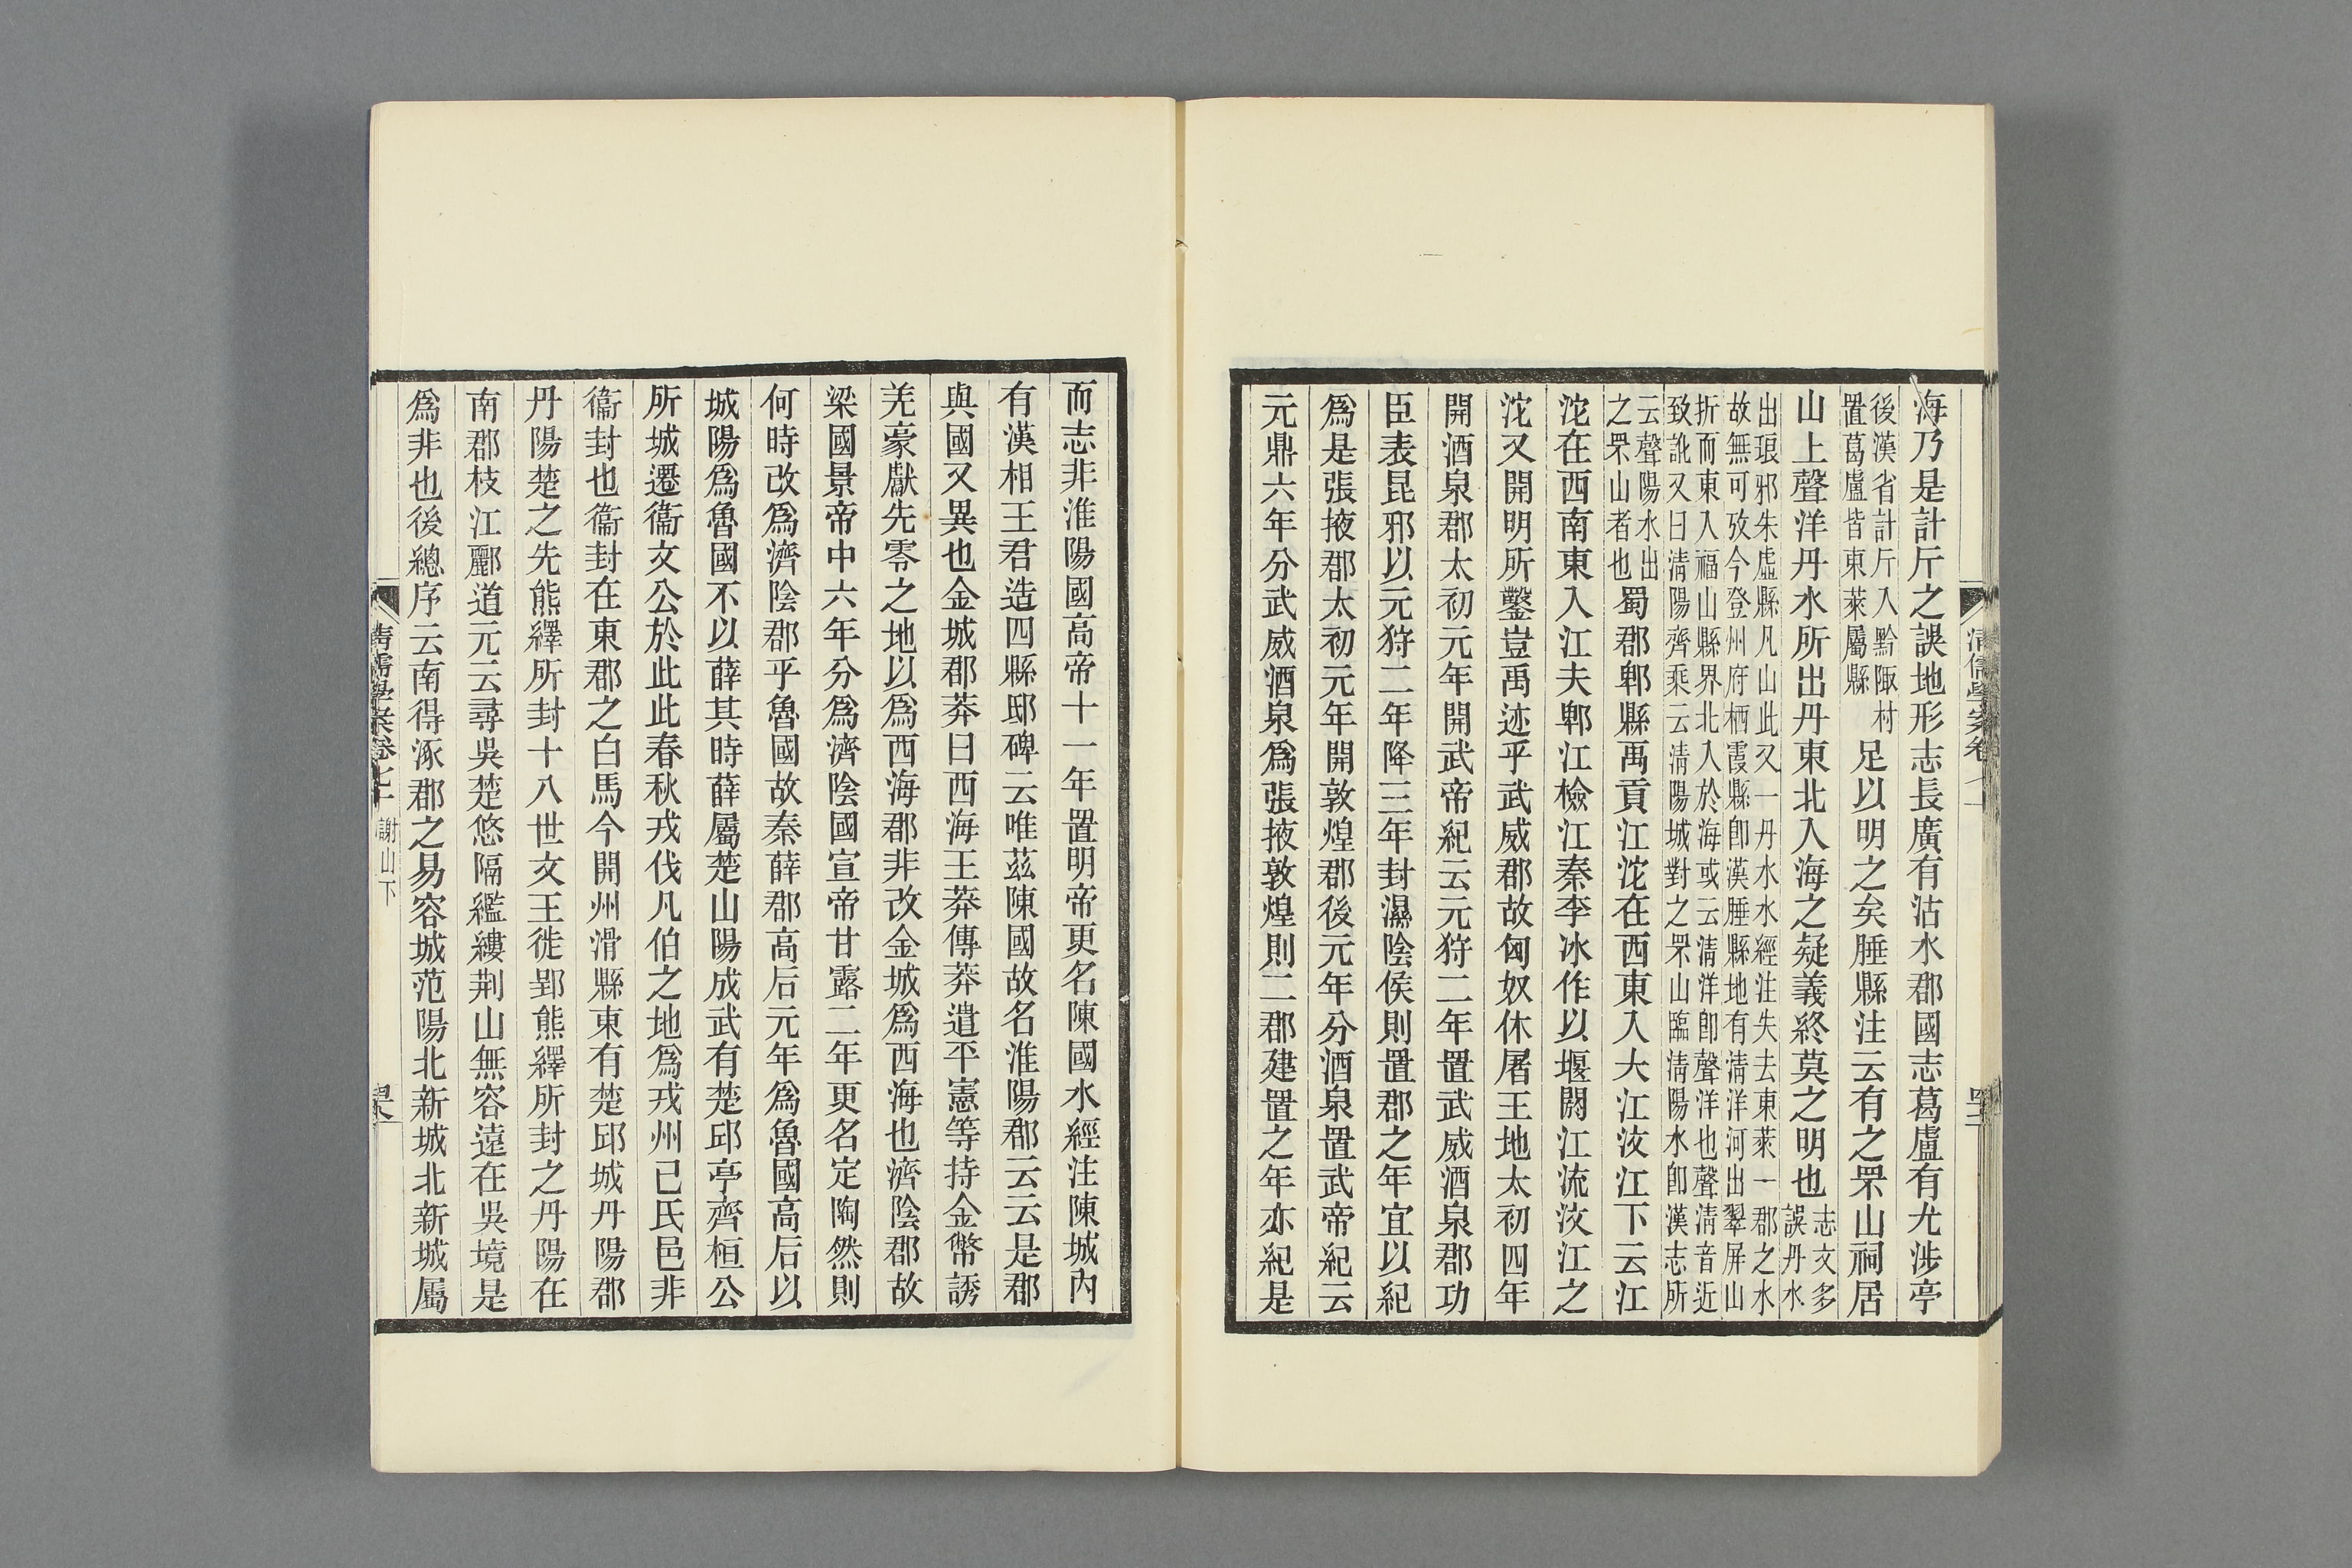 海乃是計斤之誤地形志長廣有沽水郡國志葛盧有尤涉亭
後漢省計斤入黔陬村
置葛盧皆東萊屬縣
足以明之矣腄縣注云有之罘山祠居
山上聲洋丹水所出丹東北入海之疑義終莫之明也
志文多
誤丹水
出琅邪朱虛縣凡山此又一丹水水經注失去東萊一郡之水
故無可攷今登州府栖霞縣卽漢腄縣地有淸洋河出翠屏山
折而東入福山縣界北入於海或云淸洋卽聲洋也聲淸音近
致訛又曰淸陽齊乘云淸陽城對之罘山臨淸陽水卽漢志所
云聲陽水出
之罘山者也
蜀郡郫縣禹貢江沱在西東入大江汶江下云江
沱在西南東入江夫郫江檢江秦李冰作以堰闕江流汶江之
沱又開明所鑿豈禹迹乎武威郡故匈奴休屠王地太初四年
開酒泉郡太初元年開武帝紀云元狩二年置武威酒泉郡功
臣表昆邪以元狩二年降三年封濕陰侯則置郡之年宜以紀
爲是張掖郡太初元年開敦煌郡後元年分酒泉置武帝紀云
元鼎六年分武威酒泉爲張掖敦煌則二郡建置之年亦紀是
而志非淮陽國高帝十一年置明帝更名陳國水經注陳城內
有漢相王君造四縣邸碑云唯茲陳國故名淮陽郡云云是郡
與國又異也金城郡莽曰西海王莽傳莽遣平憲等持金幣誘
羌豪獻先零之地以爲西海郡非改金城爲西海也濟陰郡故
梁國景帝中六年分爲濟陰國宣帝甘露二年更名定陶然則
何時改爲濟陰郡乎魯國故秦薛郡高后元年爲魯國高后以
城陽爲魯國不以薛其時薛屬楚山陽成武有楚邱亭齊桓公
所城遷衞文公於此此春秋戎伐凡伯之地爲戎州己氏邑非
衞封也衞封在東郡之白馬今開州滑縣東有楚邱城丹陽郡
丹陽楚之先熊繹所封十八世文王徙郢熊繹所封之丹陽在
南郡枝江酈道元云尋吳楚悠隔繿縷荆山無容遠在吳境是
爲非也後總序云南得涿郡之易容城范陽北新城北新城屬
淸儒學案卷七十
謝山下